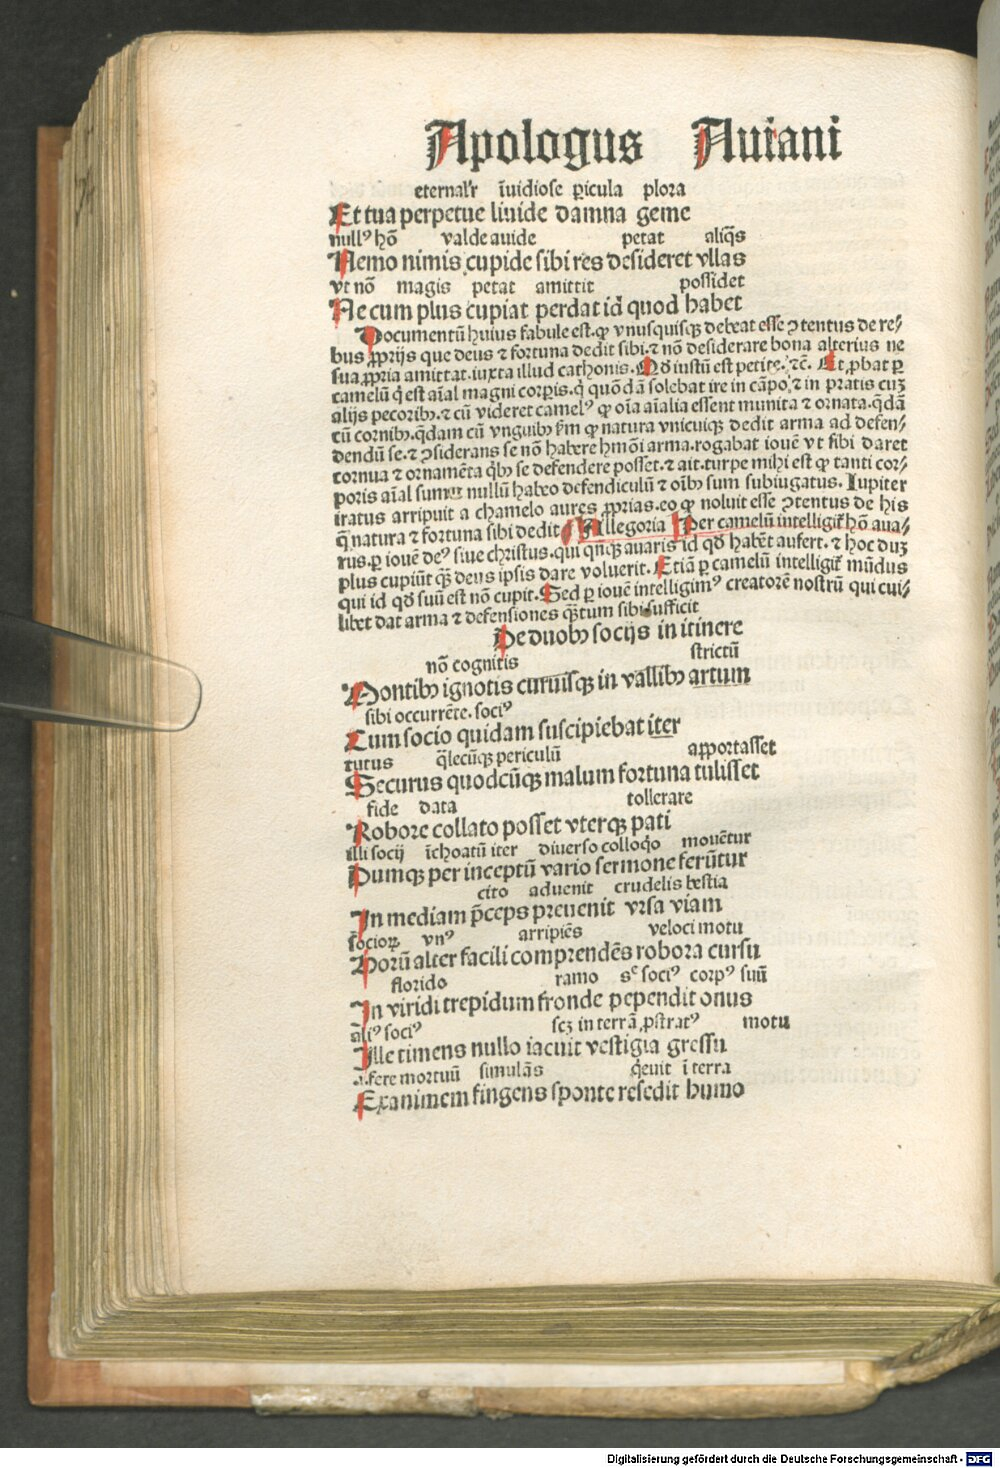 Apologus Auiani
eternalr̃ ĩuidiose ꝑicula plora
Et tua perpetue liuide damna geme
nullꝰ hõ valde auide petat aliq̃s
Nemo nimis cupide sibi res desideret vllas
vt nõ magis petat amittit possidet
Ne cum plus cupiat perdat id quod habet
Documentũ huius fabule est. ꝙ vnusquisqꝫ debeat esse ↄtentus de re/
bus ꝓprijs que deus ⁊ fortuna dedit sibi. ⁊ nõ desiderare bona alterius ne
sua ꝓpria amittat. iuxta illud cathonis. Qd̃ iustũ est petite. ⁊c̃. Et ꝓbat ꝑ
camelũ q̃ est aĩal magni corꝑis. q̃ quõdã solebat ire in cãpo ⁊ in pratis cuꝫ
alijs pecoribꝫ. ⁊ cũ videret camelꝰ ꝙ oĩa aĩalia essent munita ⁊ ornata. q̃dã
cũ cornibꝫ. q̃dam cũ vnguibꝫ ẜm ꝙ natura vnicuiqꝫ dedit arma ad defen/
dendũ se. ⁊ ↄsiderans se nõ habere hmõi arma. rogabat iouẽ vt sibi daret
cornua ⁊ ornamẽta q̃bꝫ se defendere posset. ⁊ ait. turpe mihi est ꝙ tanti cor/
poris aĩal sum ⁊ nullũ habeo defendiculũ ⁊ oĩbꝫ sum subiugatus. Iupiter
iratus arripuit a chamelo aures ꝓprias. eo ꝙ noluit esse ↄtentus de his
q̃ natura ⁊ fortuna sibi dedit Allegoria Per camelũ intelligit̃ hõ aua/
rus. ꝑ iouẽ deꝰ siue christus. qui qñqꝫ auaris id qd̃ habẽt aufert. ⁊ hoc duꝫ
plus cupiũt q̃ꝫ deus ipsis dare voluerit. Etiã ꝑ camelũ intelligit̃ mũdus
qui id qd̃ suũ est nõ cupit. Sed ꝑ iouẽ intelligimꝰ creatorẽ nostrũ qui cui/
libet dat arma ⁊ defensiones q̃ꝫtum sibi sufficit
De duobꝫ socijs in itinere
nõ cognitis strictũ
Montibꝫ ignotis curuisqꝫ in vallibꝫ artum
sibi occurrẽte. sociꝰ
Cum socio quidam suscipiebat iter
tutus q̃lecũqꝫ periculũ apportasset
Securus quodcũqꝫ malum fortuna tulisset
fide data tollerare
Robore collato posset vterqꝫ pati
illi socij ĩchoatũ iter diuerso colloq̃o mouẽtur
Dumqꝫ per inceptũ vario sermone ferũtur
cito aduenit crudelis bestia
In mediam p̃ceps preuenit vrsa viam
socioꝝ vnꝰ arripiẽs veloci motu
Horũ alter facili comprendẽs robora cursu
florido ramo sꝫ sociꝰ corpꝰ suũ
In viridi trepidum fronde pependit onus
aliꝰ sociꝰ scꝫ in terrã ꝓstratꝰ motu
Ille timens nullo iacuit vestigia gressu
fere mortuũ simulãs q̃euit ĩ terra
Exanimem fingens sponte resedit humo
Digitalisierung gefördert durch die Deutsche Forschungsgemeinschaft - DFG